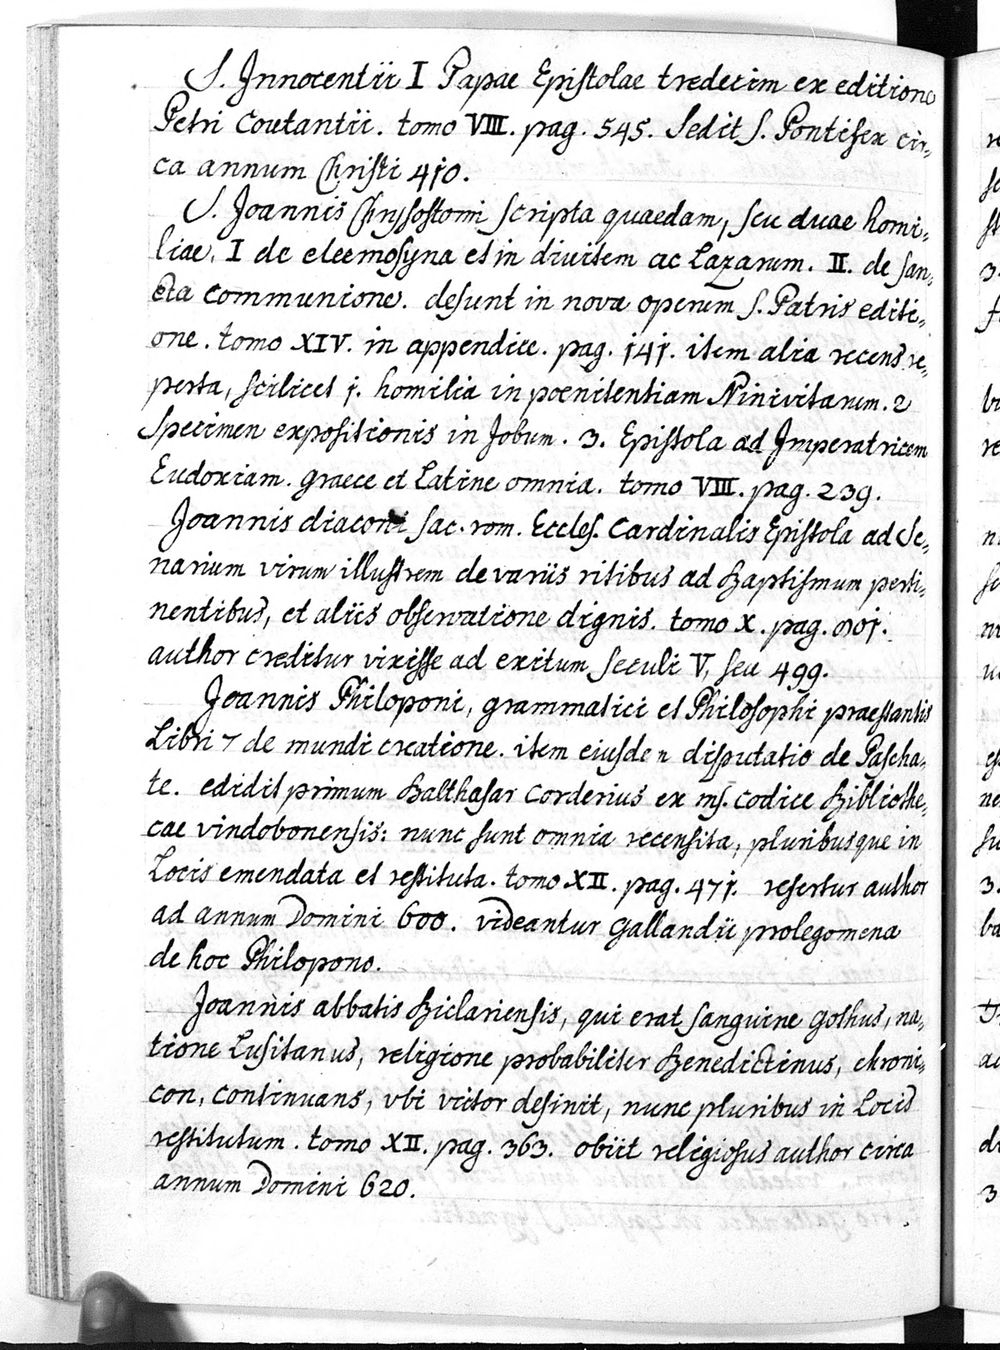 S. Innocentii I Papae Epistolae tredecim ex editione
Petri Coutantii. tomo VIII. pag. 545. Sedit S. Pontifex cir-
ca annum Christi 410.
S. Joannis Chrysostomi scripta quaedam, seu duae homi-
liae. I de eleemosyna et in divitem ac Lazarum. II. de san-
cta communione. desunt in nova operum S. Patris editi-
one. tomo XIV. in appendice. pag. 141. item alia recens re-
perta, scilicet 1. homilia in poenitentiam Ninivitarum. 2
Specimen expositionis in Jobum. 3. Epistola ad Imperatricem
Eudoxiam. graece et Latine omnia. tomo VIII. pag. 239.
Joannis diaconi sac. rom. Eccles. Cardinalis Epistola ad Se-
narium virum illustrem de variis ritibus ad Baptismum perti-
nentibus, et aliis observatione dignis. tomo X. pag.
author creditur vixisse ad exitum seculi V, seu 499.
Joannis Philoponi, grammatici et Philosophi praestantis
Libri 7 de mundi creatione. item eiusdem disputatio de Pascha-
te. edidit primum Balthasar Corderius ex ms. codice Bibliothe-
cae vindobonensis: nunc sunt omnia recensita, pluribusque in
Locis emendata et restituta. tomo XII. pag. 471. refertur author
ad annum Domini 600. videantur Gallandii prolegomena
de hoc Philopono.
Joannis abbatis Biclariensis, qui erat sanguine Gothus, na-
tione Lusitanus, religione probabiliter Benedictinus, chroni-
con, continuans, ubi victor desinit, nunc pluribus in Locis
restitutum. tomo XII. pag. 363. obiit religiosus author circa
annum Domini 620.